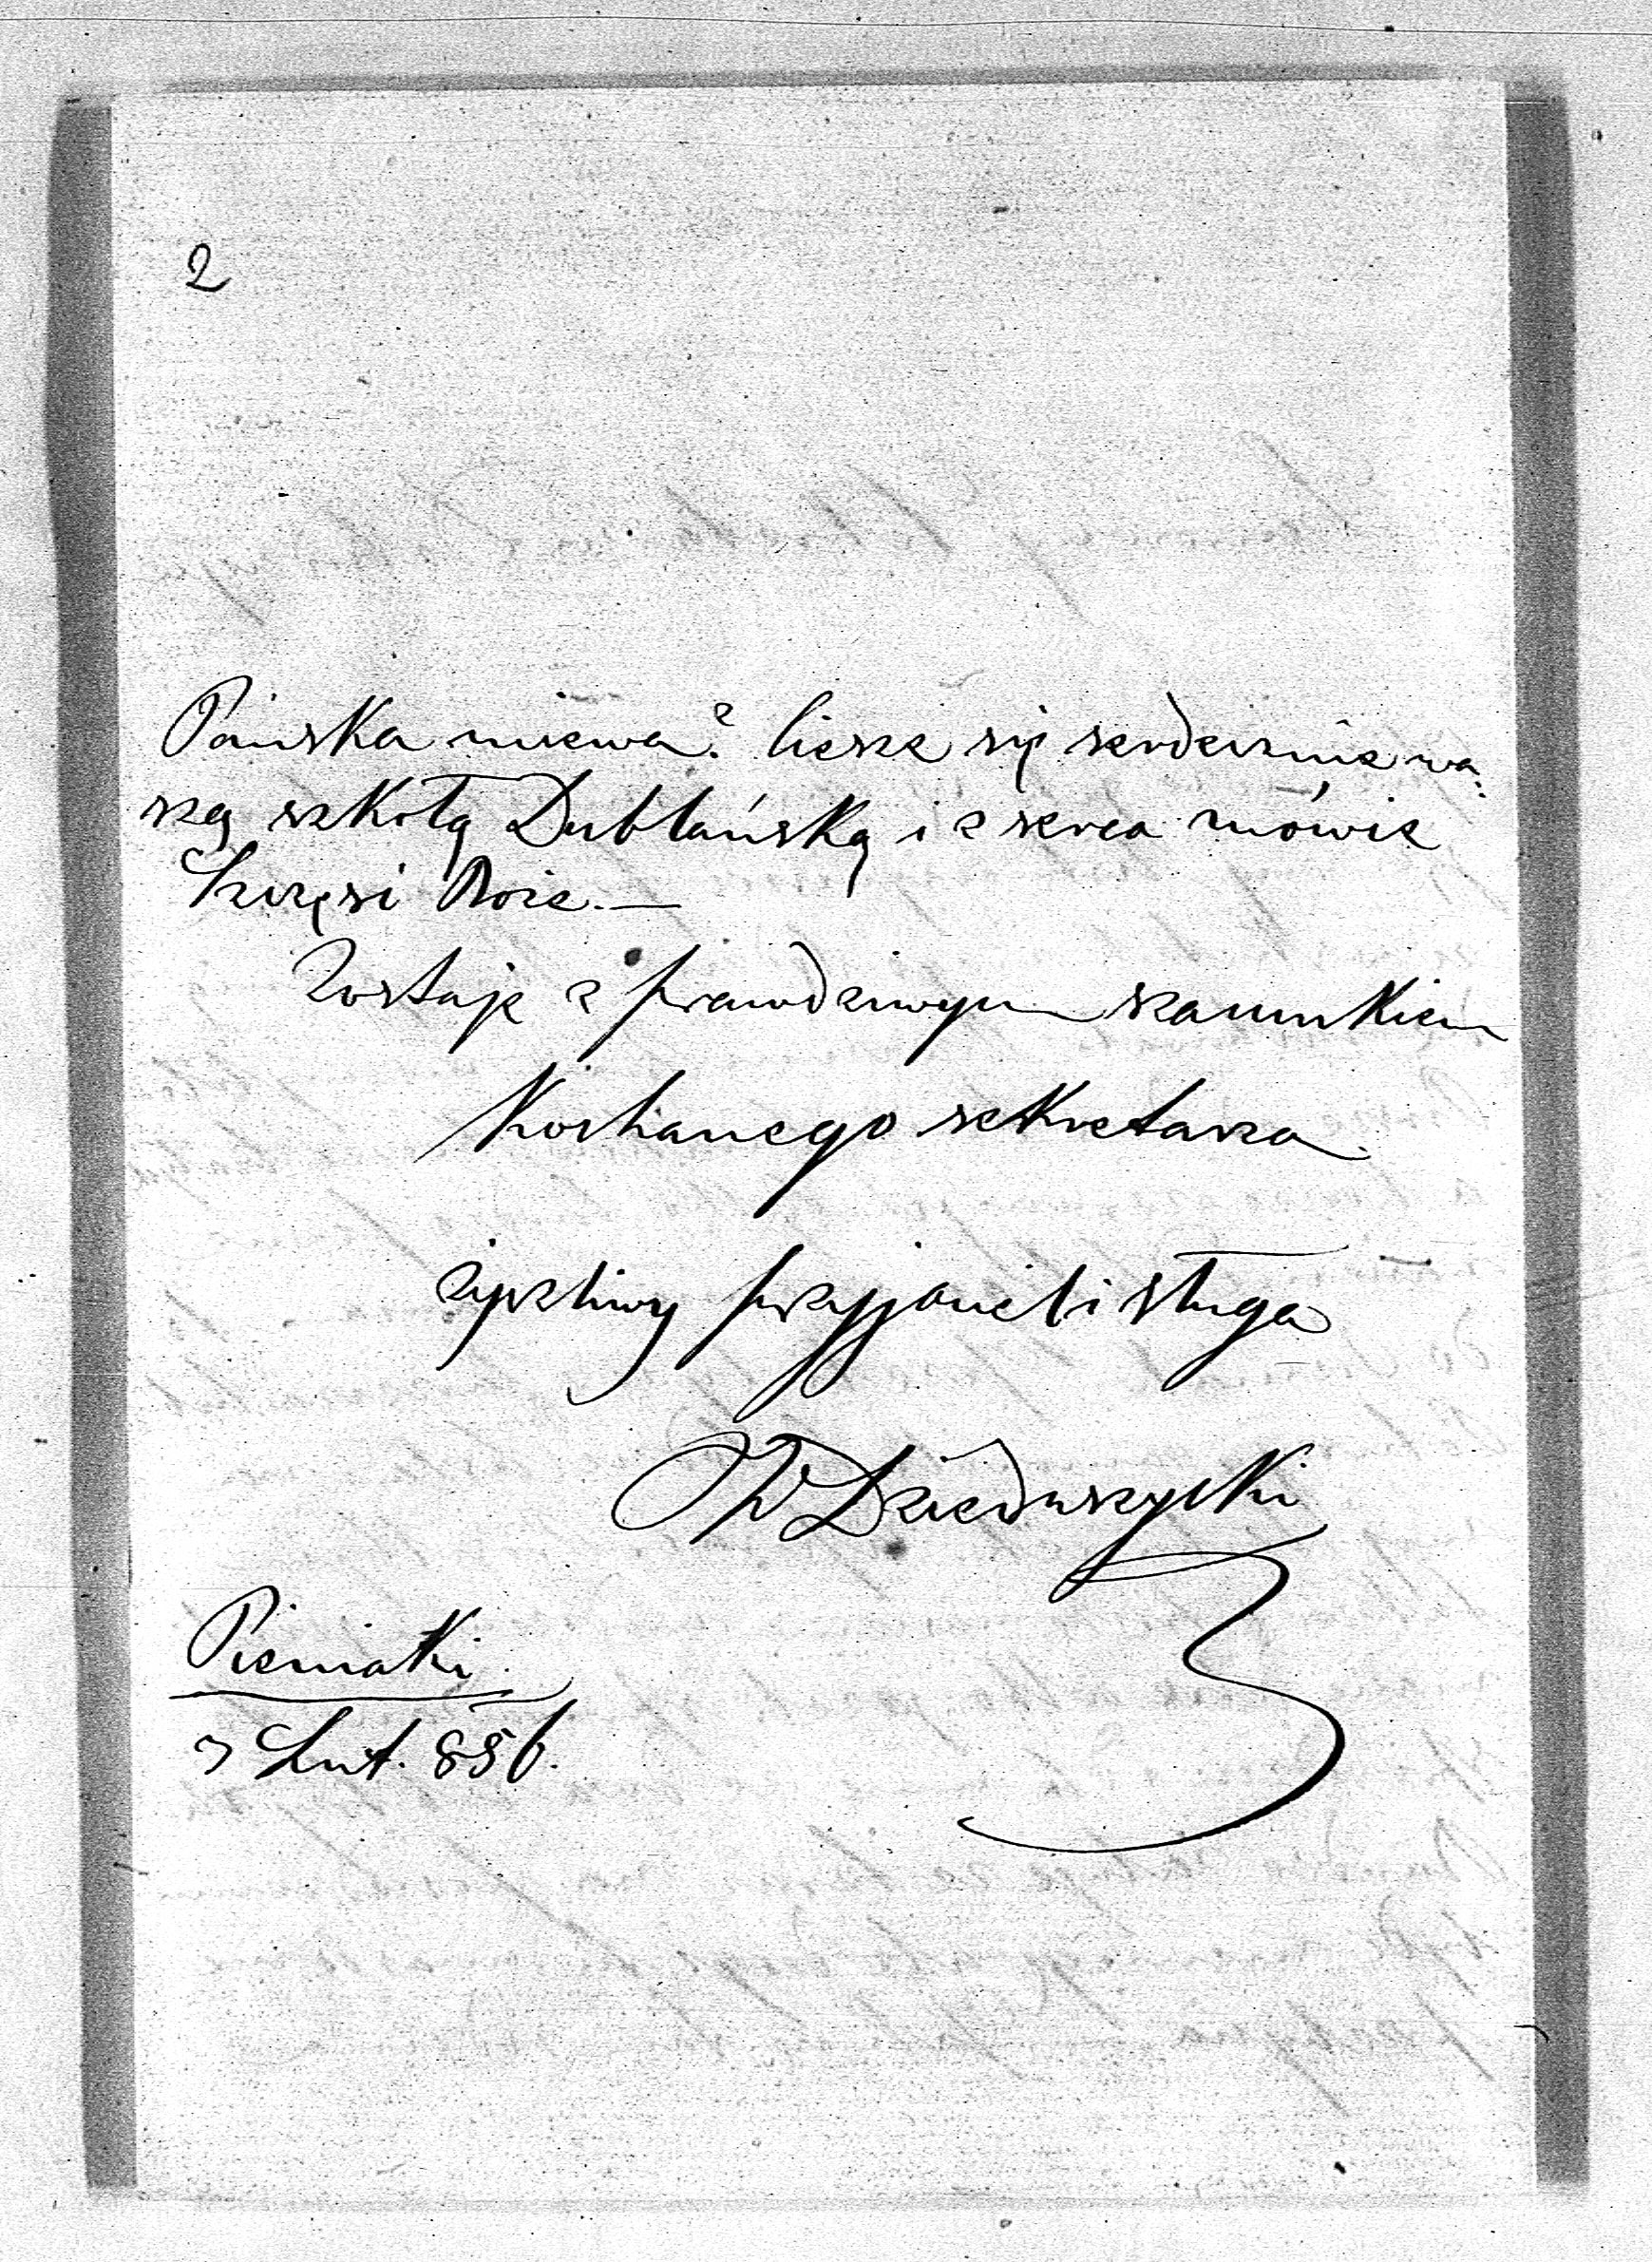 2
Pańska miewa? Cieszę się serdecznie wa:
szą szkołą Dublańską i z serca mówię
Szczęść Boże.—
Zostaję z prawdziwym szacunkiem
Kochanego sekretarza
życzliwy przyjaciel i sługa
WDzieduszycki
Pieniaki
3 Lut. 856.